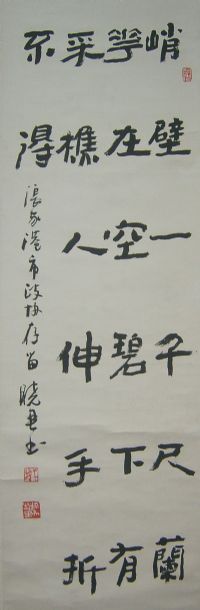 峭壁一千尺蘭
花在空碧下有
采樵人伸手折
不得
張家港市政协存留 晓君书